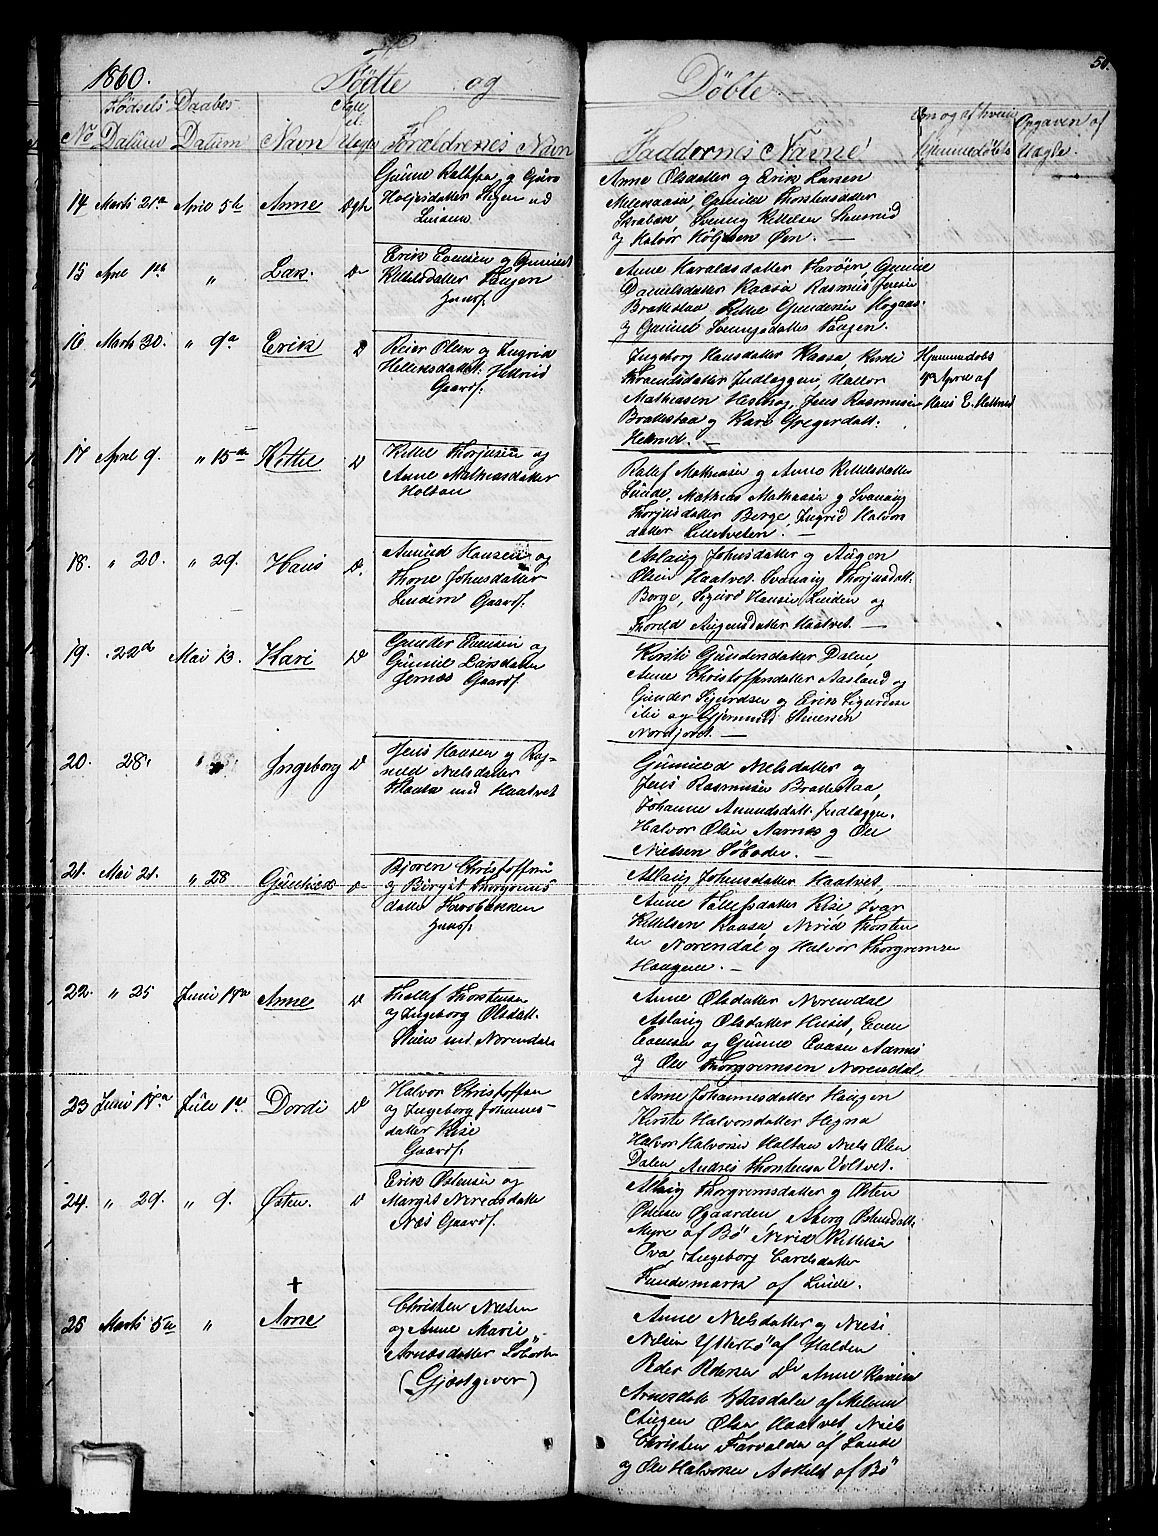 1860. Födte og Döbte 50.
No Födsels Datum Daabes Datum Navn Ægte el. Uægte Forældrenes Navn Faddernes Navne Hjemmedöbte Opgaven af Uægte.
14 Marts 21a April 5te Anne Ægte
Holjesdatter Stigen ved
Anne Olsdatter og Erik Larsen
Gunild Thorstensdatter
og Halvor Holjesen Øen. —
15 April 1ste " Lars. Do
Erik Evensen og Gunild
Kittelsdatter Haugen
Huusf.
Anne Haraldsdatter Haröen Gunild
Danielsdatter Kaasa Rasmus Jensen
og Gunild Sveinugsdatter Haugen.
16 Marts 30. " 9de Erik Do
Reier Olsen og Ingrid
Helleksdatter Hellerud
Gaardf.
Ingeborg Hansdatter Kaasa, Kirsti
Indlæggen, Hallvor
Mathiesen Hesthag, Jens Rasmussen
Brattestaa og Kari Gregersdatt.
Hellerud. —
Hjemmedöbt
April af
Hans E. Hellerud
17 April 9. " 15de Kittil Do
Kittel Thorjusen og
Anne Mathiasdatter
Holtan
Rollef Mathiasen og Anne Kittelsdatter
Linde, Mathias Mathiasen og Svanaug
Thorjusdatter Berge, Ingrid Halvors
datter Lilletveten. —
18. " 20. " 29. Hans Do.
Amund Hansen og
Thone Johnsdatter
Linden Gaardf.
Aslaug Johnsdatter og Augen
Olsen Haatvet Svanaug Thorjusdatt.
Berge, Sigurd Hansen Linden og
Thorild Augensdatter Haatvet. —
19. " 22de Mai 13. Kari Do
Gunder Evensen og
Gunild Larsdatter
Jernæs Gaardf.
Kirsti Gundersdatter Dalen,
Anne Christoffersdatter Aasland og
Gunder Sigurdsen og Erik Sigurdsen
ibi og Gjermund Simensen
Nordjordet. —
20. " 28. Ingeborg Do
Jens Hansen og Rag-
nild Nielsdatter
Klausa ved Haatvet
Gunild Nielsdatter og
Jens Rasmusen Brattestaa,
Johanne Amundsdatt. Indlæggen
Halvor Olsen Aarnæs og Ole
Nielsen Söboden. —
21. Mai 21. " 28 Gunhild Do
Bjoren Christoffersen
og Birgit Thorgrims
datter Harebakken
Huusf.
Aslaug Johnsdatter Haatvet,
Anne Tollefsdatter Rise Ivar
Kittelsen Kaasa, Nirid Thorsten
sen Norendal og Halvor Thorgrimsen
Haugene. —
22. " 25 Juni 17de Anne Do
Thollef Thorstensen
og Ingeborg Olsdatt.
Stuen ved Norendal
Anne Olsdatter Norendal
Aslaug Olsdatter Huset, Even
Evensen og Gunild Evensen Aarnæs
og Ole Thorgrimsen Norendal.
23 Juni 17de Juli 1ste Dordi Do
Halvor Christoffersen
og Ingeborg Johannes-
datter Rise
Gaardf.
Anne Johannesdatter Haugen
Kirsti Halvorsdatter Hegna
Halvor Halvorsen Holtan Niels Olsen
Dalen, Andres Thorstensen Voltvet.
24. " 29. " 9. Østen. Do
Erik Østensen og
Margit Niridsdatter
Næs Gaardf.
Aslaug Thorgrimsdatter og Østen
Østensen Øgaarden Asberg Østensdatt.
Myre af Bö Nirid Kittelsen
Ova, Ingeborg Carlsdatter
Fundemark af Lunde.
†
25 Marts 5te " Arne
Christen Nielsen
og Anne Marie
Arnesdatter Söboden
(Gjæstgiver)
Anne Nielsdatter og Niels
Nilsen Ytterbö af Halden
Peder Pedersen Do Anne Karine
Arnesdatt. Vasdalen af Melum
Augen Olsen Haatvet, Niels
Christen Farvolden af Lunde
og Ole Halvorsen Askild af Bö